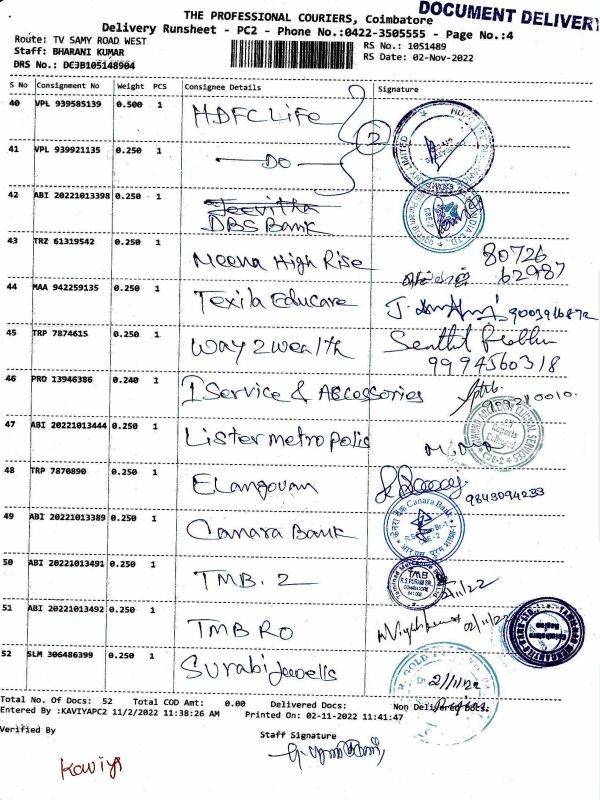 DOCUMENT DELIVERY
THE PROFESSIONAL COURIERS, Coimbatore
Delivery Runsheet - PC2 - Phone No.:0422-3505555 - Page No.:4
Route: TV SAMY ROAD WEST
RS No.: 1051489
Staff: BHARANI KUMAR
RS Date: 02-Nov-2022
DRS No.: DC3B105148904
S No Consignment No Weight PCS Consignee Details Signature
40 VPL 939585139 0.500 1 HDFC Life
41 VPL 939921135 0.250 1 DO 2
42 ABI 20221013398 0.250 1 Jeevitha
DBS Bank
43 TRZ 61319542 0.250 1 Meena High Rise 80726
62987
44 MAA 942259135 0.250 1 Texila Educare
45 TRP 7874615 0.250 1 Way2wealth Senthil Prabhu
9994560318
46 PRO 13946386 0.240 1 I Service & Accessories
47 ABI 20221013444 0.250 1 Lister metropolis
48 TRP 7870890 0.250 1 Elangovan 9843094233
49 ABI 20221013389 0.250 1 Canara Bank
केनरा बैंक Canara Bank
50 ABI 20221013491 0.250 1 TMB. 2
TMB
R.S PURAM BR.
COIMBATORE
641 002
51 ABI 20221013492 0.250 1 TMB RO 02/11/22
52 SLM 306486399 0.250 1 Surabi jewells 2/11/22
Total No. Of Docs: 52 Total COD Amt: 0.00 Delivered Docs: Non Delivered Docs:
Entered By :KAVIYAPC2 11/2/2022 11:38:26 AM Printed On: 02-11-2022 11:41:47
Verified By
Staff Signature
Kaviya